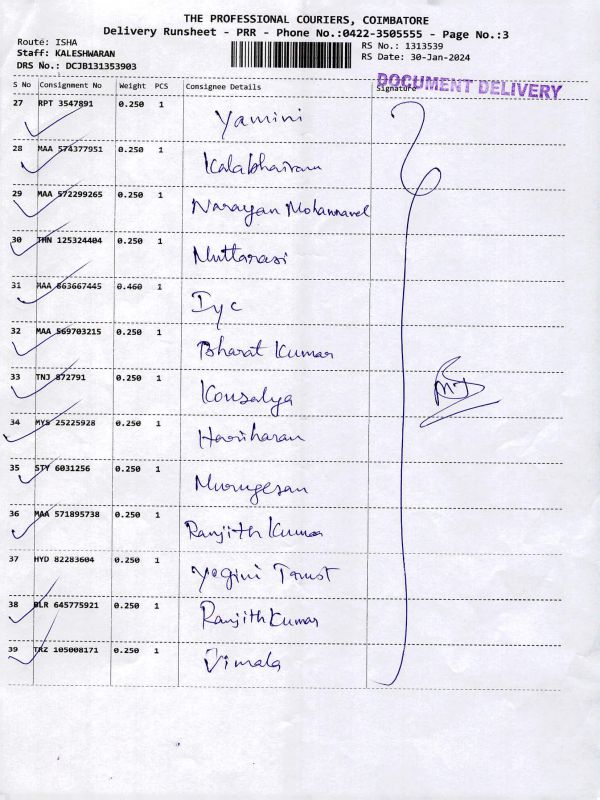 THE PROFESSIONAL COURIERS, COIMBATORE
Delivery Runsheet - PRR - Phone No.:0422-3505555 - Page No.:3
Route: ISHA
RS No.: 1313539
Staff: KALESHWARAN
RS Date: 30-Jan-2024
DRS No.: DCJB131353903
DOCUMENT DELIVERY
S No Consignment No Weight PCS Consignee Details Signature
27 RPT 3547891 0.250 1 Yamini
28 MAA 574377951 0.250 1 Kalabhairam
29 MAA 572299265 0.250 1 Narayan Mohanavel
30 TMN 125324404 0.250 1 Muttarasi
31 MAA 863667445 0.460 1 Iyc
32 MAA 569703215 0.250 1 Bharat Kumar
33 TNJ 872791 0.250 1 Kousalya
34 MYS 25225928 0.250 1 Hariharan
35 STY 6031256 0.250 1 Murugesan
36 MAA 571895738 0.250 1 Ranjith Kumar
37 HYD 82283604 0.250 1 Yogini Trust
38 BLR 645775921 0.250 1 Ranjith Kumar
39 TRZ 105008171 0.250 1 Vimala